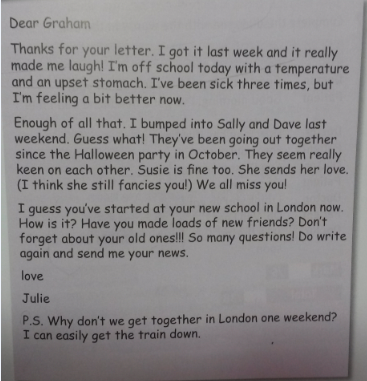 Dear Graham
Thanks for your letter. I got it last week and it really
made me laugh! I'm off school today with a temperature
and an upset stomach. I've been sick three times, but
I'm feeling a bit better now.
Enough of all that. I bumped into Sally and Dave last
weekend. Guess what! They've been going out together
since the Halloween party in October. They seem really
keen on each other. Susie is fine too. She sends her love.
(I think she still fancies you!) We all miss you!
I guess you've started at your new school in London now.
How is it? Have you made loads of new friends? Don't
forget about your old ones!!! So many questions! Do write
again and send me your news.
love
Julie
P.S. Why don't we get together in London one weekend?
I can easily get the train down.